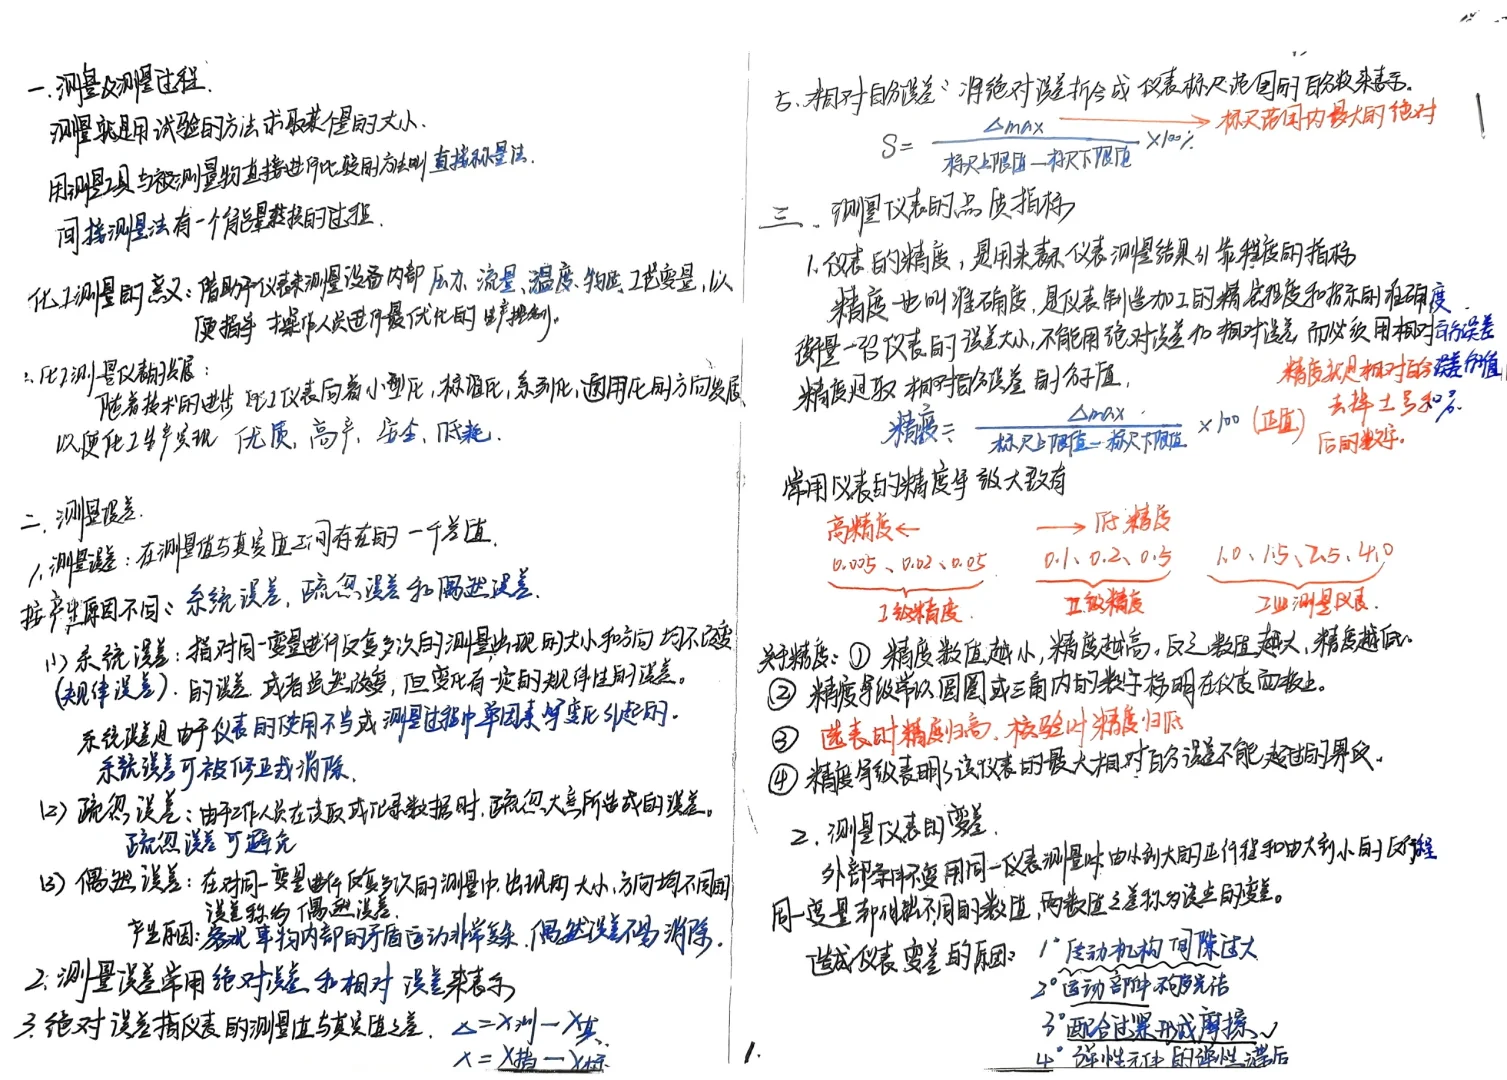 一.测量及测量过程.
测量就是用试验的方法求取某个量的大小.
用测量工具与被测量物直接进行比较的方法叫直接称量法.
间接测量法有一个能量转换的过程.
化工测量的意义:借助于仪表来测量设备内部压力、流量、温度、物位、工艺变量,以
便指导操作人员进行最优化的生产控制。
化工测量仪表的发展:
随着技术的进步化工仪表向着小型化,标准化,系列化,通用化的方向发展
以便化工生产实现 优质,高产,安全,低耗.
二.测量误差.
1.测量误差:在测量值与真实值之间存在的一个差值.
按产生原因不同:系统误差,疏忽误差和偶然误差.
(1)系统误差:指对同一变量进行反复多次的测量出现的大小和方向均不改变
(规律误差).的误差或者虽然改变,但变化有一定的规律性的误差。
系统误差是由于仪表的使用不当或测量过程中单因素等变化引起的.
系统误差可被修正或消除.
(2)疏忽误差:由于工作人员在读取或记录数据时,疏忽大意所造成的误差。
疏忽误差可避免
(3)偶然误差:在对同一变量进行反复多次的测量中,出现的大小,方向均不同的
误差称为偶然误差.
产生原因:客观事物内部的矛盾运动非常复杂.偶然误差不易消除.
2.测量误差常用绝对误差和相对误差来表示
3.绝对误差指仪表的测量值与真实值之差. △=X测-X真
X=X指-X标
1.
七.相对百分误差:将绝对误差折合成仪表标尺范围的百分数来表示。
S=△max/标尺上限值-标尺下限值×100% → 标尺范围内最大的绝对
三.测量仪表的品质指标
1.仪表的精度,是用来表示仪表测量结果可靠程度的指标
精度也叫准确度,是仪表制造加工的精密程度和指示的准确度
衡量一台仪表的误差大小,不能用绝对误差和相对误差而必须用相对百分误差
精度是取相对百分误差的分子值.
精度就是相对百分误差分值
去掉±号和%
后的数字.
精度=△max/标尺上限值-标尺下限值×100(正值)
常用仪表的精度等级大致有
高精度← → 低精度
0.005、0.02、0.05 0.1、0.2、0.5 1.0、1.5、2.5、4.0
I级精度. II级精度 工业测量仪表.
关于精度:①精度数值越小,精度越高,反之数值越大,精度越低.
②精度等级常以圆圈或三角内的数字标明在仪表面板上.
③选表时精度归高.校验时精度归低
④精度等级表明了该仪表的最大相对百分误差不能超过的界限.
2.测量仪表的变差.
外部条件不变用同一仪表测量时由小到大的正行程和由大到小的反行程
同一变量却得出不同的数值,两数值之差称为该点的变差。
造成仪表变差的原因:1°传动机构间隙过大
2°运动部件不够光洁
3°配合过紧形成摩擦.
4°弹性元件的弹性滞后